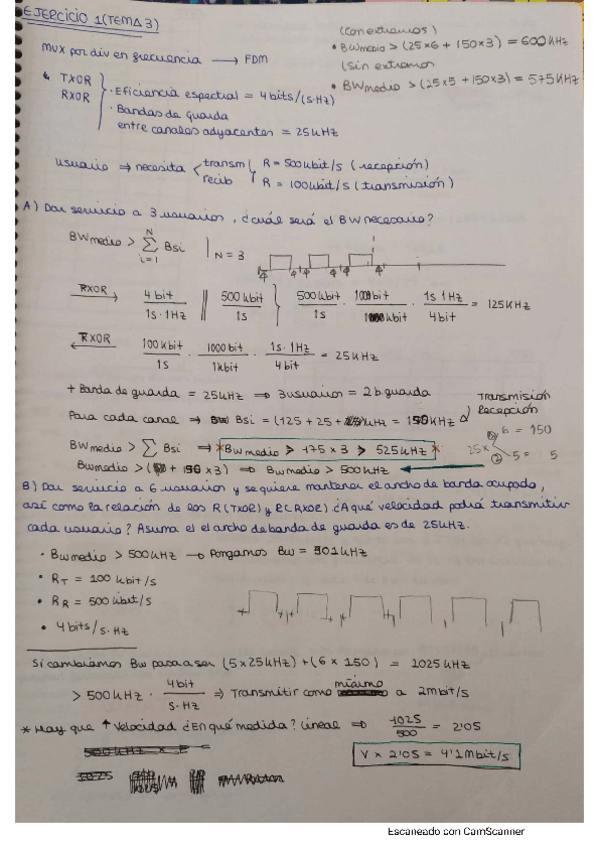 EJERCICIO 1 (TEMA 3)
MUX por div en frecuencia → FDM
(Con extremos)
• BWmedio > (25×6 + 150×3) = 600 kHz
(Sin extremos
• BWmedio > (25×5 + 150×3) = 575 kHz
TXOR
RXOR
• Eficiencia espectral = 4 bits/(s·Hz)
• Bandas de guarda
entre canales adyacentes = 25 kHz
Usuario ⇒ necesita
transm
recib
R = 500 kbit/s (recepción)
R = 100 kbit/s (transmisión)
A) Dar servicio a 3 usuarios, ¿cuál será el BW necesario?
BWmedio > N Σ i=1 Bsi | N = 3
RXOR → 4 bit / 1s·1Hz || 500 kbit / 1s } 500 kbit / 1s · bit / kbit · 1s 1Hz / 4 bit = 125 kHz
RXOR ← 100 kbit / 1s · 1000 bit / 1 kbit · 1s·1Hz / 4 bit = 25 kHz
+ Banda de guarda = 25 kHz ⇒ 3 usuarios = 2 b guarda
Para cada canal ⇒ Bsi = (125 + 25 + kHz = 150 kHz
Transmisión
Recepción
BWmedio > Σ Bsi ⇒ BWmedio > 175 × 3 > 525 kHz
25× 6 = 150
5 = 5
BWmedio > ( + 150 × 3) ⇒ BWmedio > 500 kHz
B) Dar servicio a 6 usuarios y se quiere mantener el ancho de banda ocupado,
así como la relación de los R(TXOR) y R(RXOR) ¿A qué velocidad podrá transmitir
cada usuario? Asuma el el ancho de banda de guarda es de 25 kHz.
• BWmedio > 500 kHz → Pongamos BW = 501 kHz
• RT = 100 kbit/s
• RR = 500 kbit/s
• 4 bits/s·Hz
Si cambiamos BW pasa a ser (5 × 25 kHz) + (6 × 150) = 1025 kHz
> 500 kHz · 4 bit / s·Hz ⇒ Transmitir como mínimo a 2 mbit/s
* Hay que ↑ velocidad ¿En qué medida? Lineal ⇒ 1025 / 500 = 2'05
V × 2'05 = 4'1 Mbit/s
Escaneado con CamScanner